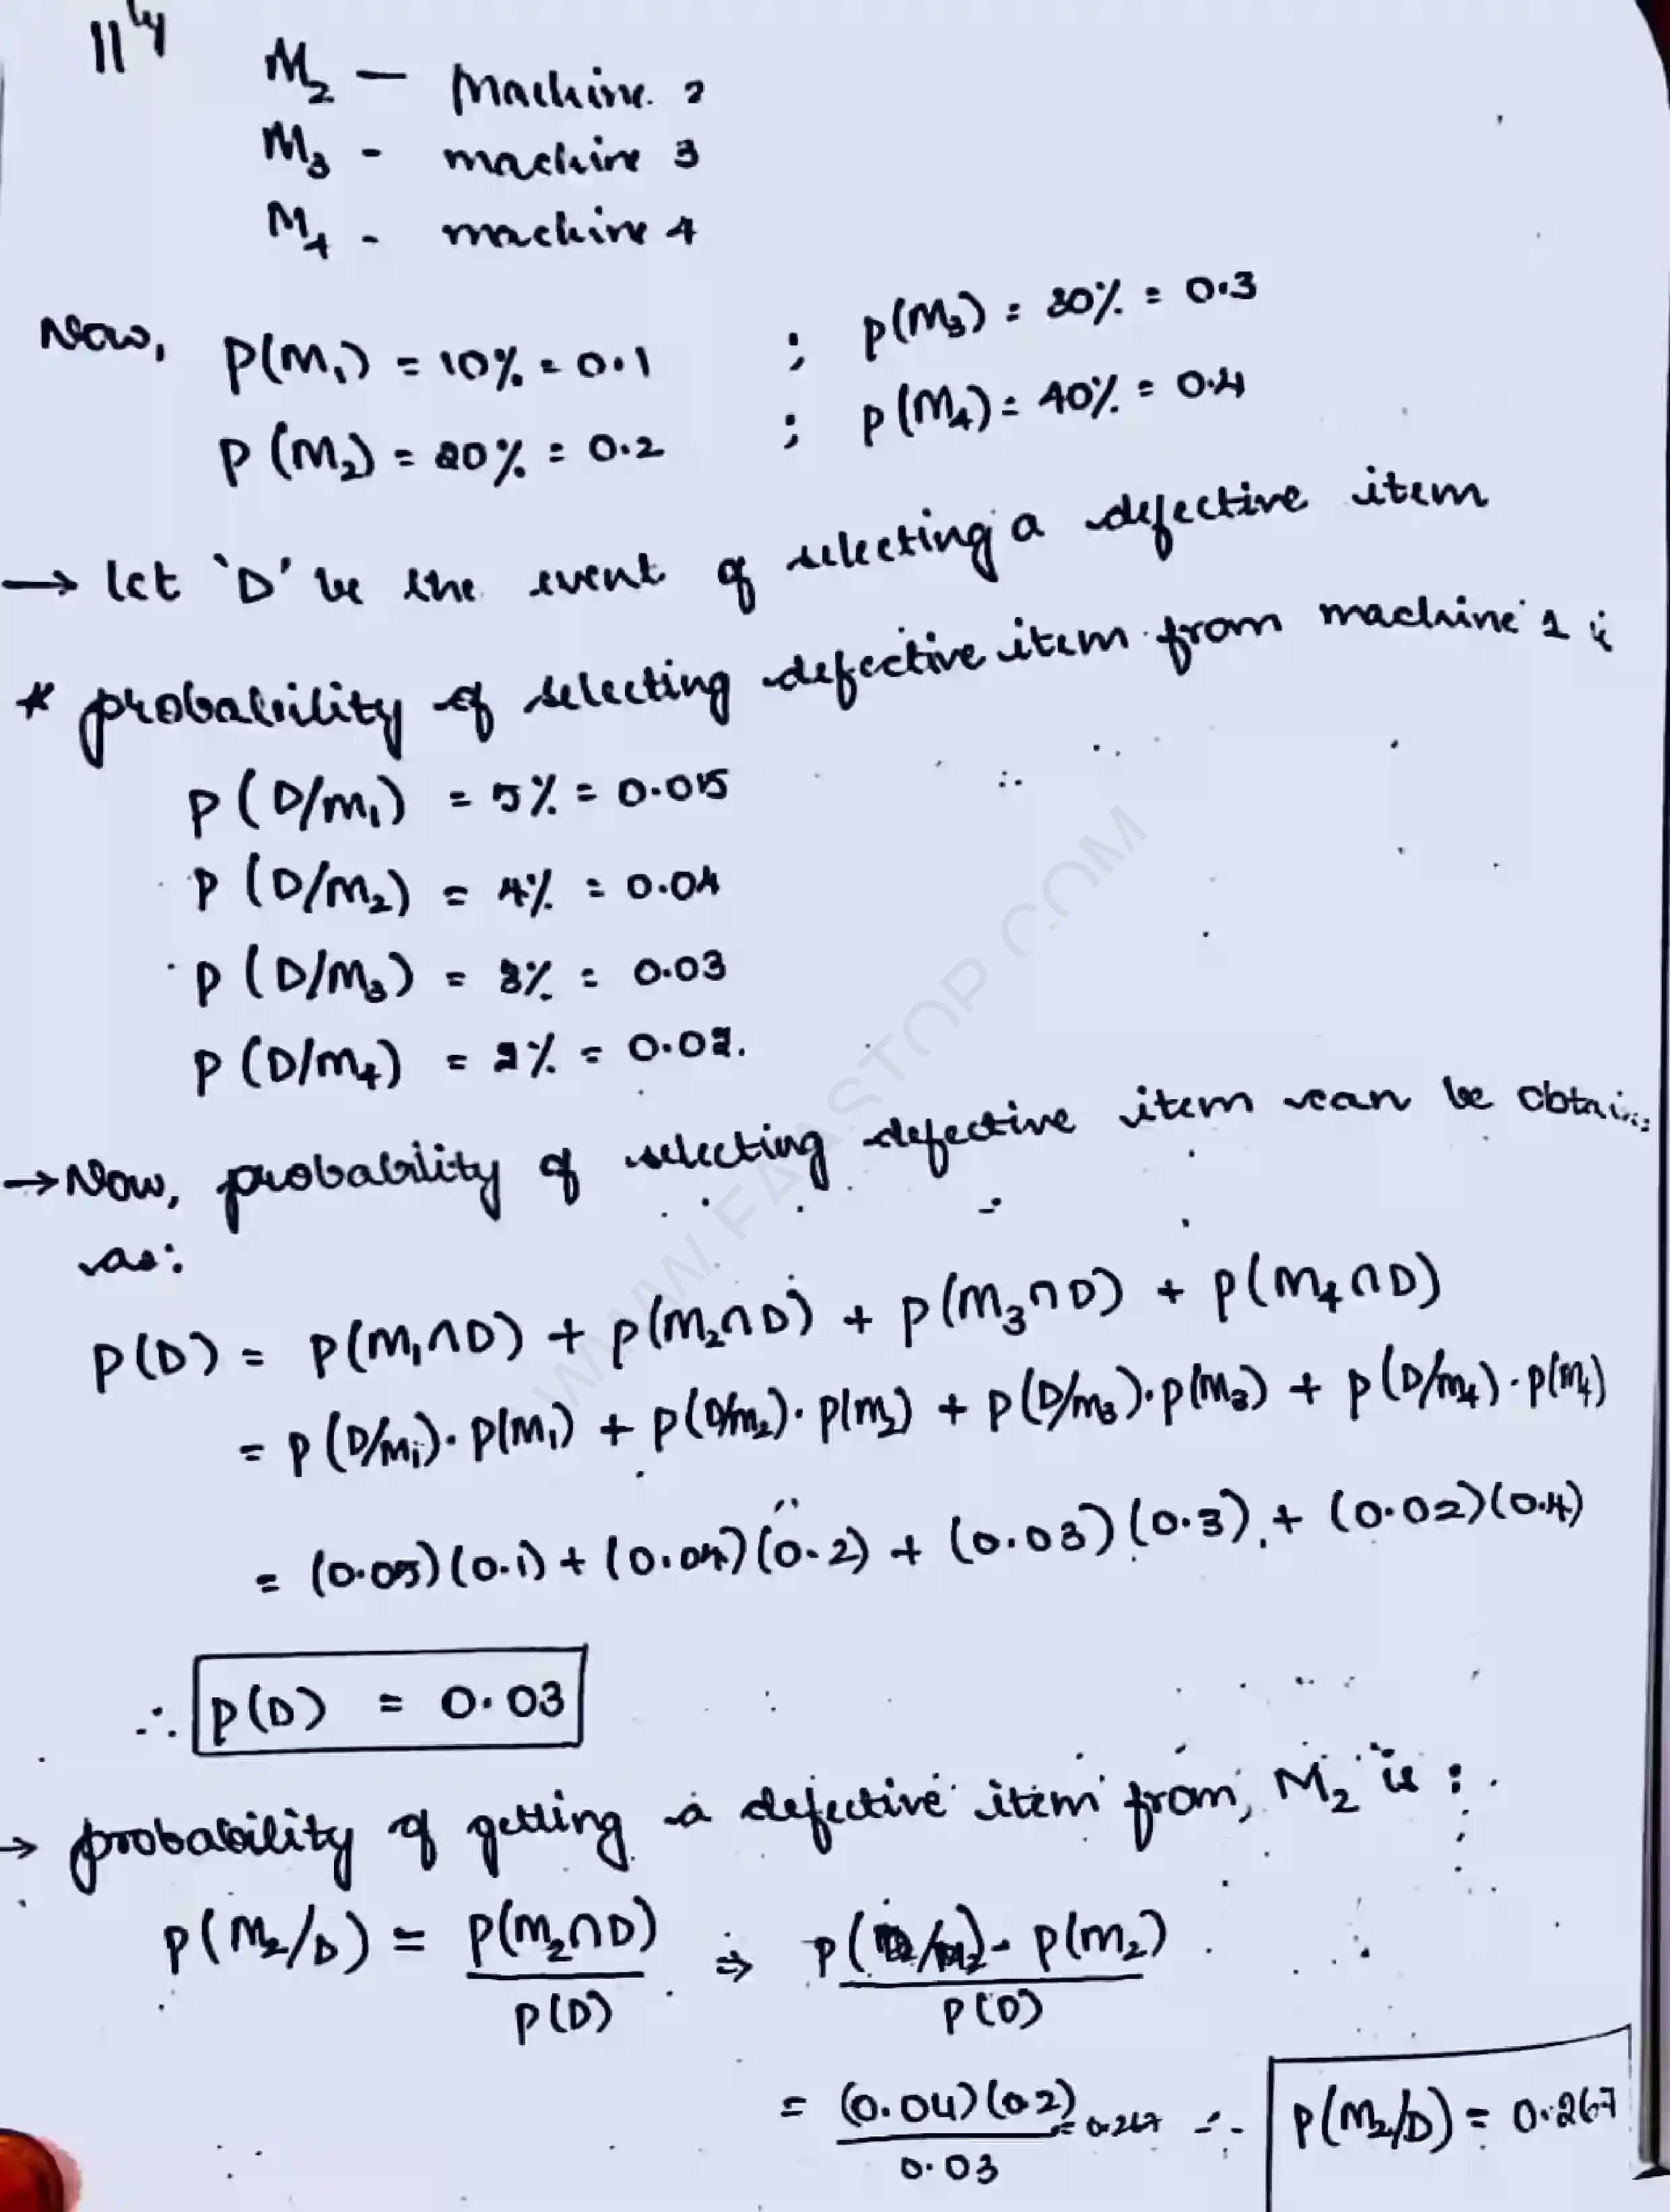 ||ly
M₂ — Machine 2
M₃ - machine 3
M₄ - machine 4
Now, P(M₁) = 10% = 0.1 ; P(M₃) = 30% = 0.3
P(M₂) = 20% = 0.2 ; P(M₄) = 40% = 0.4
→ let 'D' be the event of selecting a defective item
* probability of selecting defective item from machine 1 is
P(D/M₁) = 5% = 0.05
P(D/M₂) = 4% = 0.04
P(D/M₃) = 3% = 0.03
P(D/M₄) = 2% = 0.02.
→ Now, probability of selecting defective item can be obtai
as:
P(D) = P(M₁∩D) + P(M₂∩D) + P(M₃∩D) + P(M₄∩D)
= P(D/M₁)·P(M₁) + P(D/M₂)·P(M₂) + P(D/M₃)·P(M₃) + P(D/M₄)·P(M₄)
= (0.05)(0.1) + (0.04)(0.2) + (0.03)(0.3) + (0.02)(0.4)
∴ P(D) = 0.03
→ probability of getting a defective item from, M₂ is :
P(M₂/D) = P(M₂∩D)/P(D) ⇒ P(D/M₂)·P(M₂)/P(D)
= (0.04)(0.2)/0.03 = 0.267 ∴ P(M₂/D) = 0.267
WWW.FAASTOP.COM